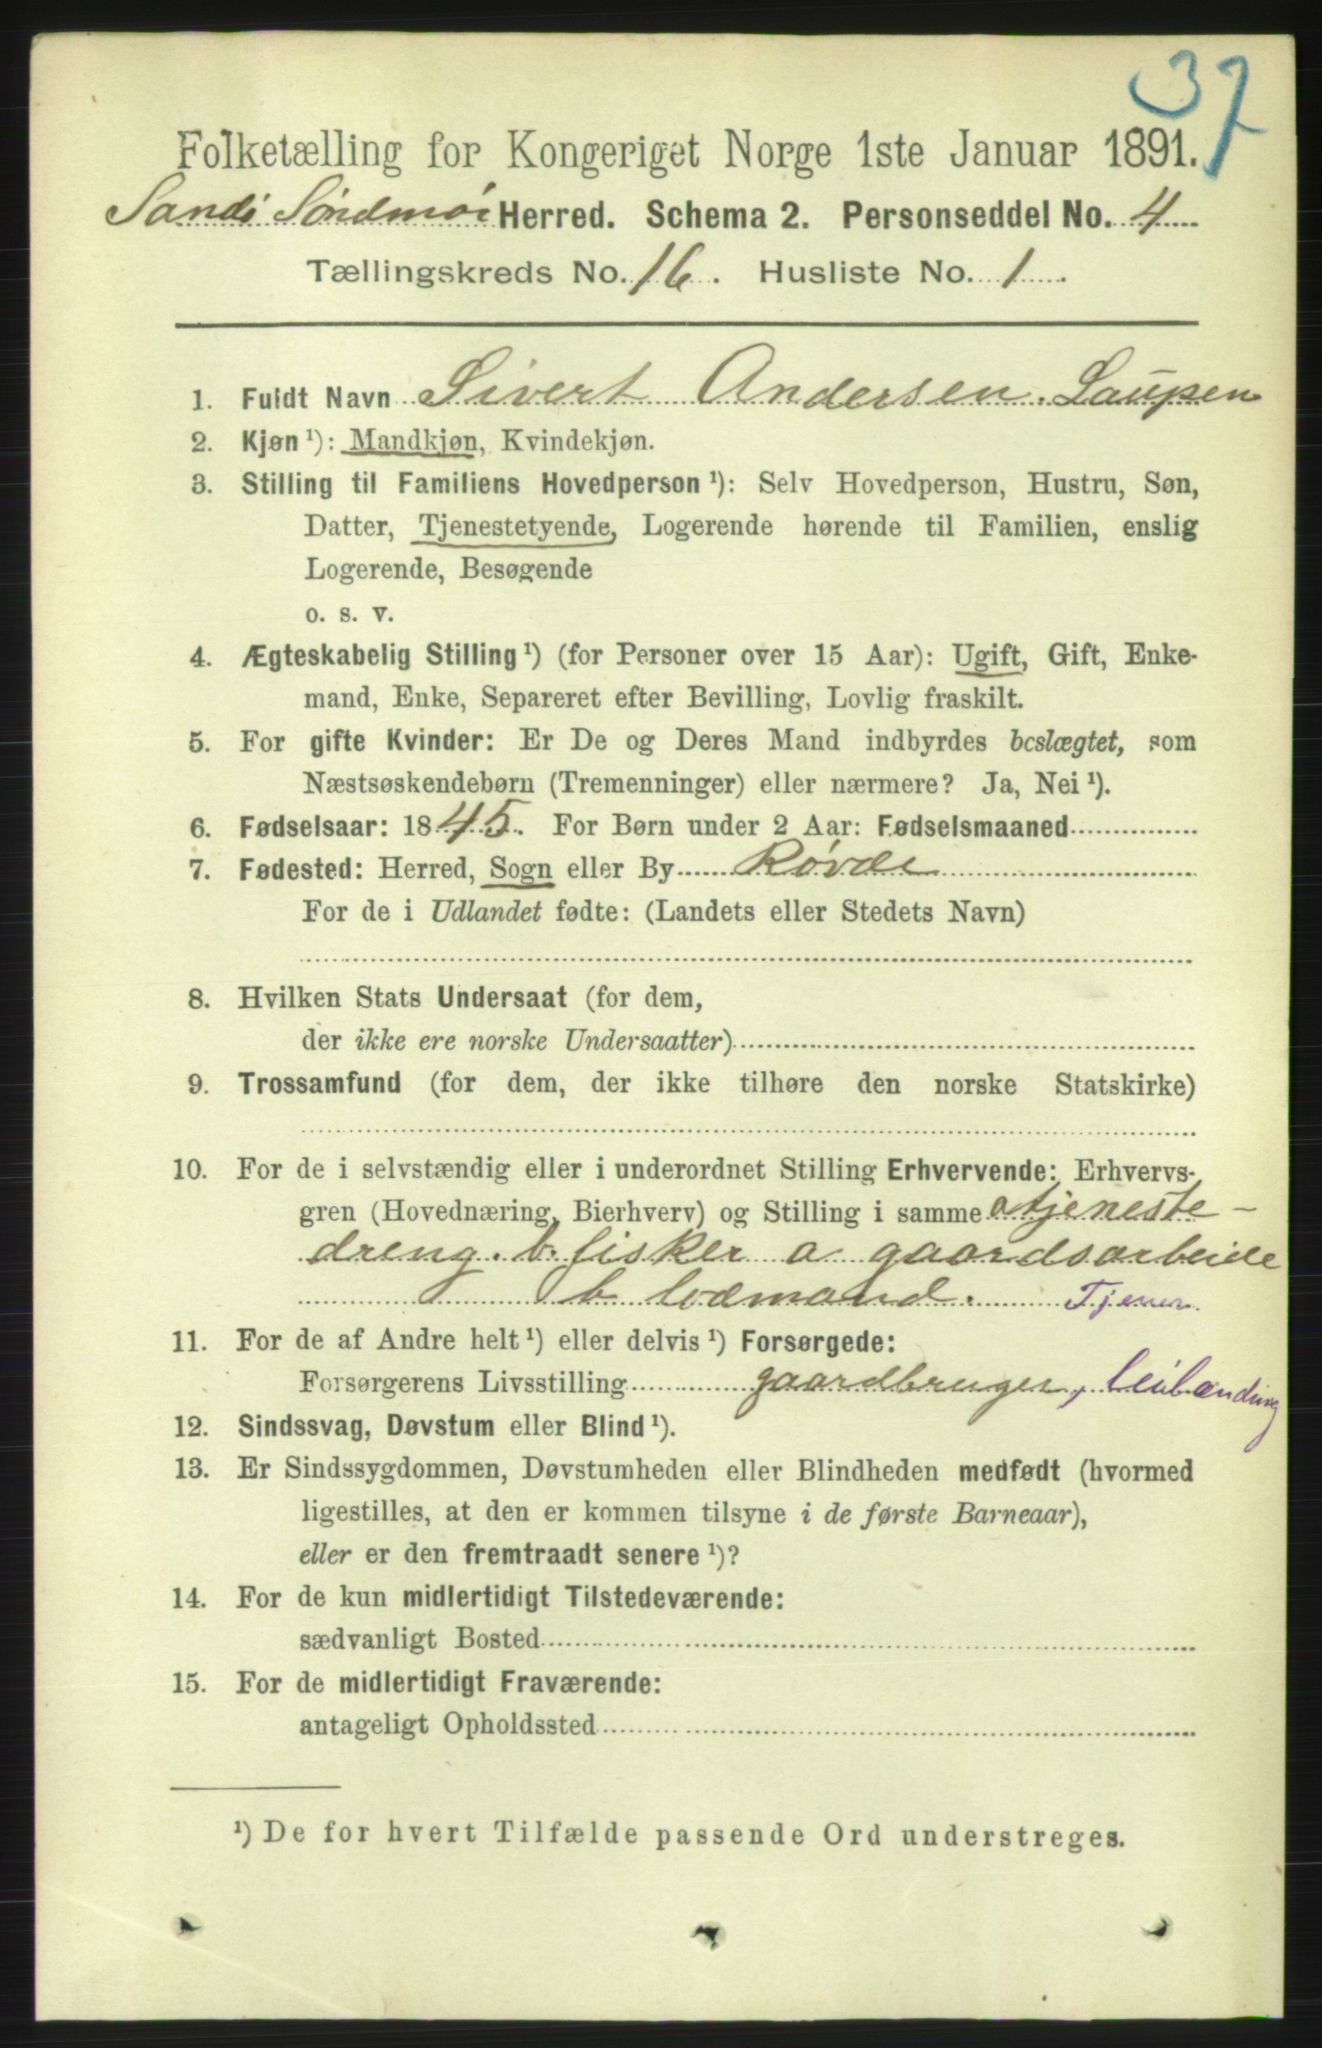 37
Folketælling for Kongeriget Norge 1ste Januar 1891.
Sande Søndmør Herred. Schema 2. Personseddel No. 4
Tællingskreds No. 16. Husliste No. 1.
1. Fuldt Navn Sivert Andersen Laupen
2. Kjøn ¹): Mandkjøn, Kvindekjøn.
3. Stilling til Familiens Hovedperson ¹): Selv Hovedperson, Hustru, Søn,
Datter, Tjenestetyende, Logerende hørende til Familien, enslig
Logerende, Besøgende
o. s. v.
4. Ægteskabelig Stilling ¹) (for Personer over 15 Aar): Ugift, Gift, Enke-
mand, Enke, Separeret efter Bevilling, Lovlig fraskilt.
5. For gifte Kvinder: Er De og Deres Mand indbyrdes beslægtet, som
Næstsøskendebørn (Tremenninger) eller nærmere? Ja, Nei ¹).
6. Fødselsaar: 1845. For Børn under 2 Aar: Fødselsmaaned
7. Fødested: Herred, Sogn eller By Røvde
For de i Udlandet fødte: (Landets eller Stedets Navn)
8. Hvilken Stats Undersaat (for dem,
der ikke ere norske Undersaatter)
9. Trossamfund (for dem, der ikke tilhøre den norske Statskirke)
10. For de i selvstændig eller i underordnet Stilling Erhvervende: Erhvervs-
gren (Hovednæring, Bierhverv) og Stilling i samme a tjeneste-
dreng. b. fisker a gaardsarbeide
b lodmand. Tjener
11. For de af Andre helt ¹) eller delvis ¹) Forsørgede:
Forsørgerens Livsstilling gaardbruger, leilænding
12. Sindssvag, Døvstum eller Blind ¹).
13. Er Sindssygdommen, Døvstumheden eller Blindheden medfødt (hvormed
ligestilles, at den er kommen tilsyne i de første Barneaar),
eller er den fremtraadt senere ¹)?
14. For de kun midlertidigt Tilstedeværende:
sædvanligt Bosted
15. For de midlertidigt Fraværende:
antageligt Opholdssted
¹) De for hvert Tilfælde passende Ord understreges.